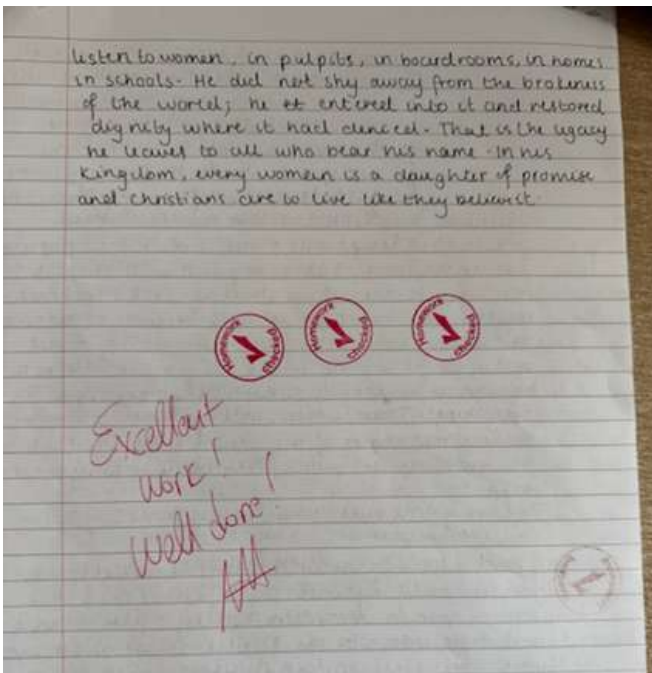 listen to women, in pulpits, in boardrooms, in homes
in schools. He did not shy away from the brokeness
of the world; he entered into it and restored
dignity where it had denied. That is the legacy
he leaves to all who bear his name. In his
Kingdom, every women is a daughter of promise
and christians are to live like they believe it.
Homework checked
Homework checked
Homework checked
Excellent
work!
well done!